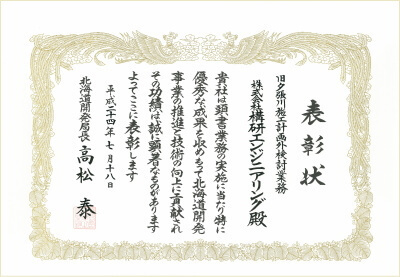 表彰状
旧夕張川施工計画外検討業務
株式会社構研エンジニアリング殿
貴社は頭書業務の実施に当たり特に
優秀な成果を収めもって北海道開発
事業の推進と技術の向上に貢献され
その功績は誠に顕著なものがあります
よってここに表彰します
平成二十四年七月十八日
北海道開発局長 高松 泰